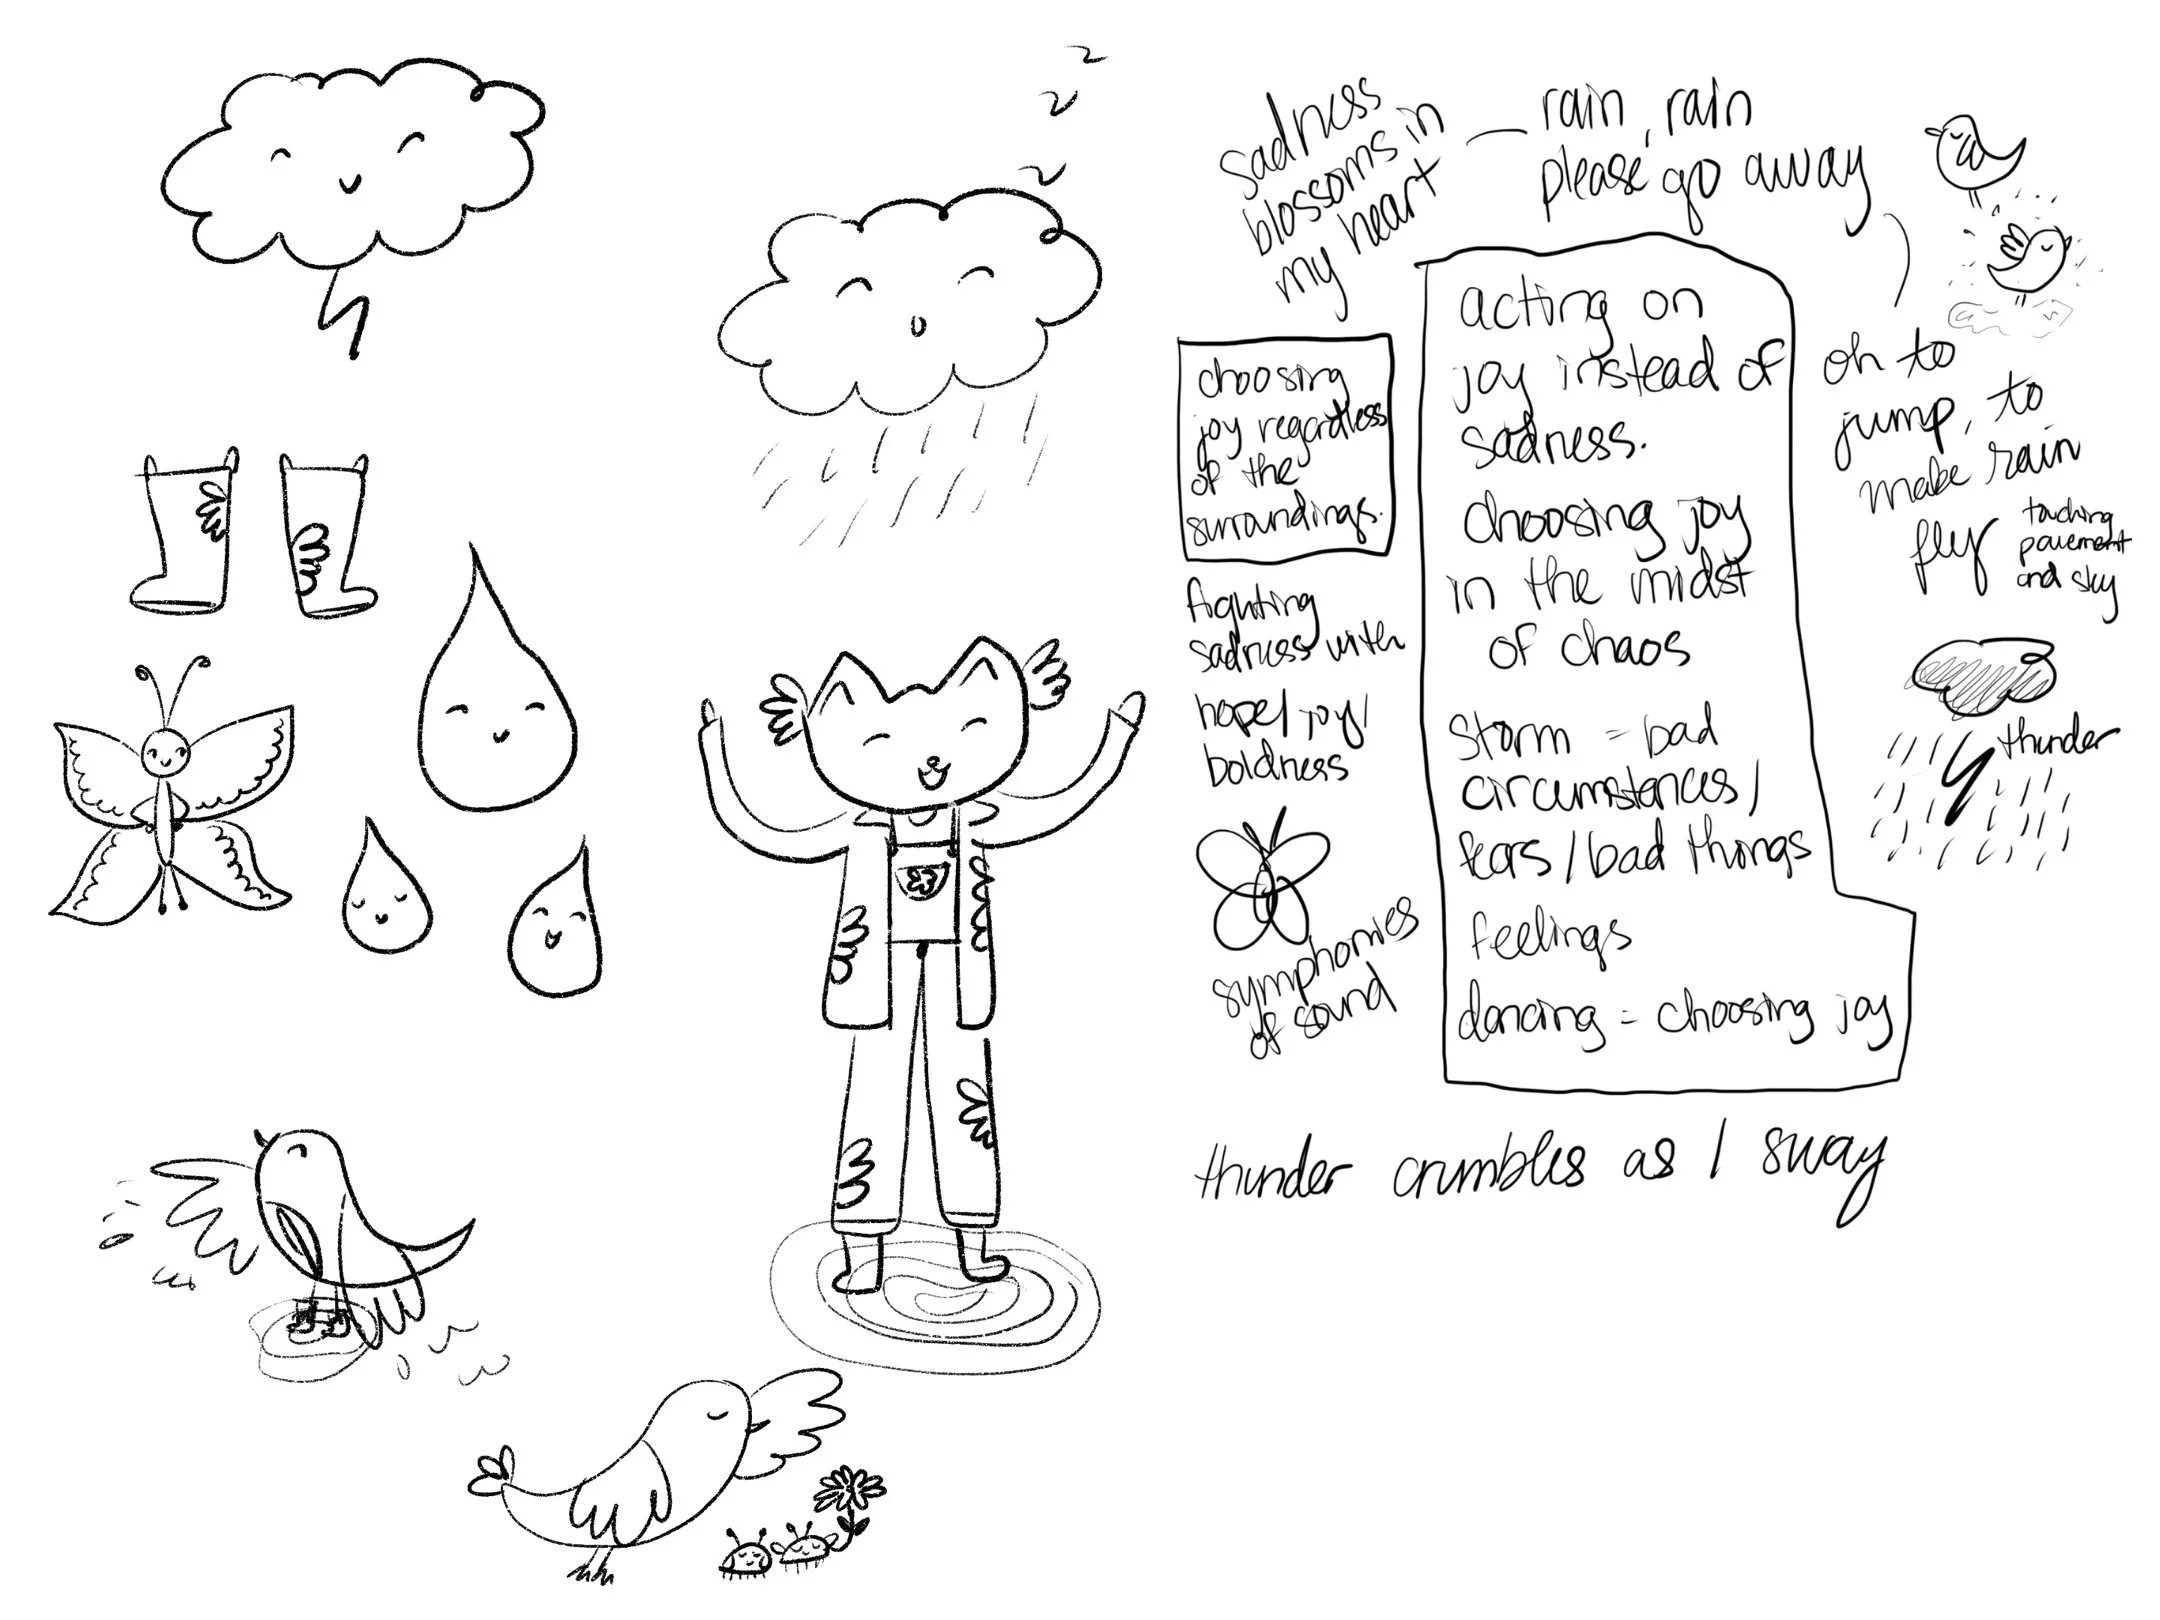 z
z
z
sadness
blossoms in
my heart
rain, rain
please go away
choosing
joy regardless
of the
surroundings.
fighting
sadness with
hope/joy/
boldness
symphonies
of sound
acting on
joy instead of
sadness.
choosing joy
in the midst
of chaos
storm = bad
circumstances/
fears/bad things
feelings
dancing = choosing joy
oh to
jump, to
make rain
fly
touching
pavement
and sky
thunder
thunder crumbles as I sway